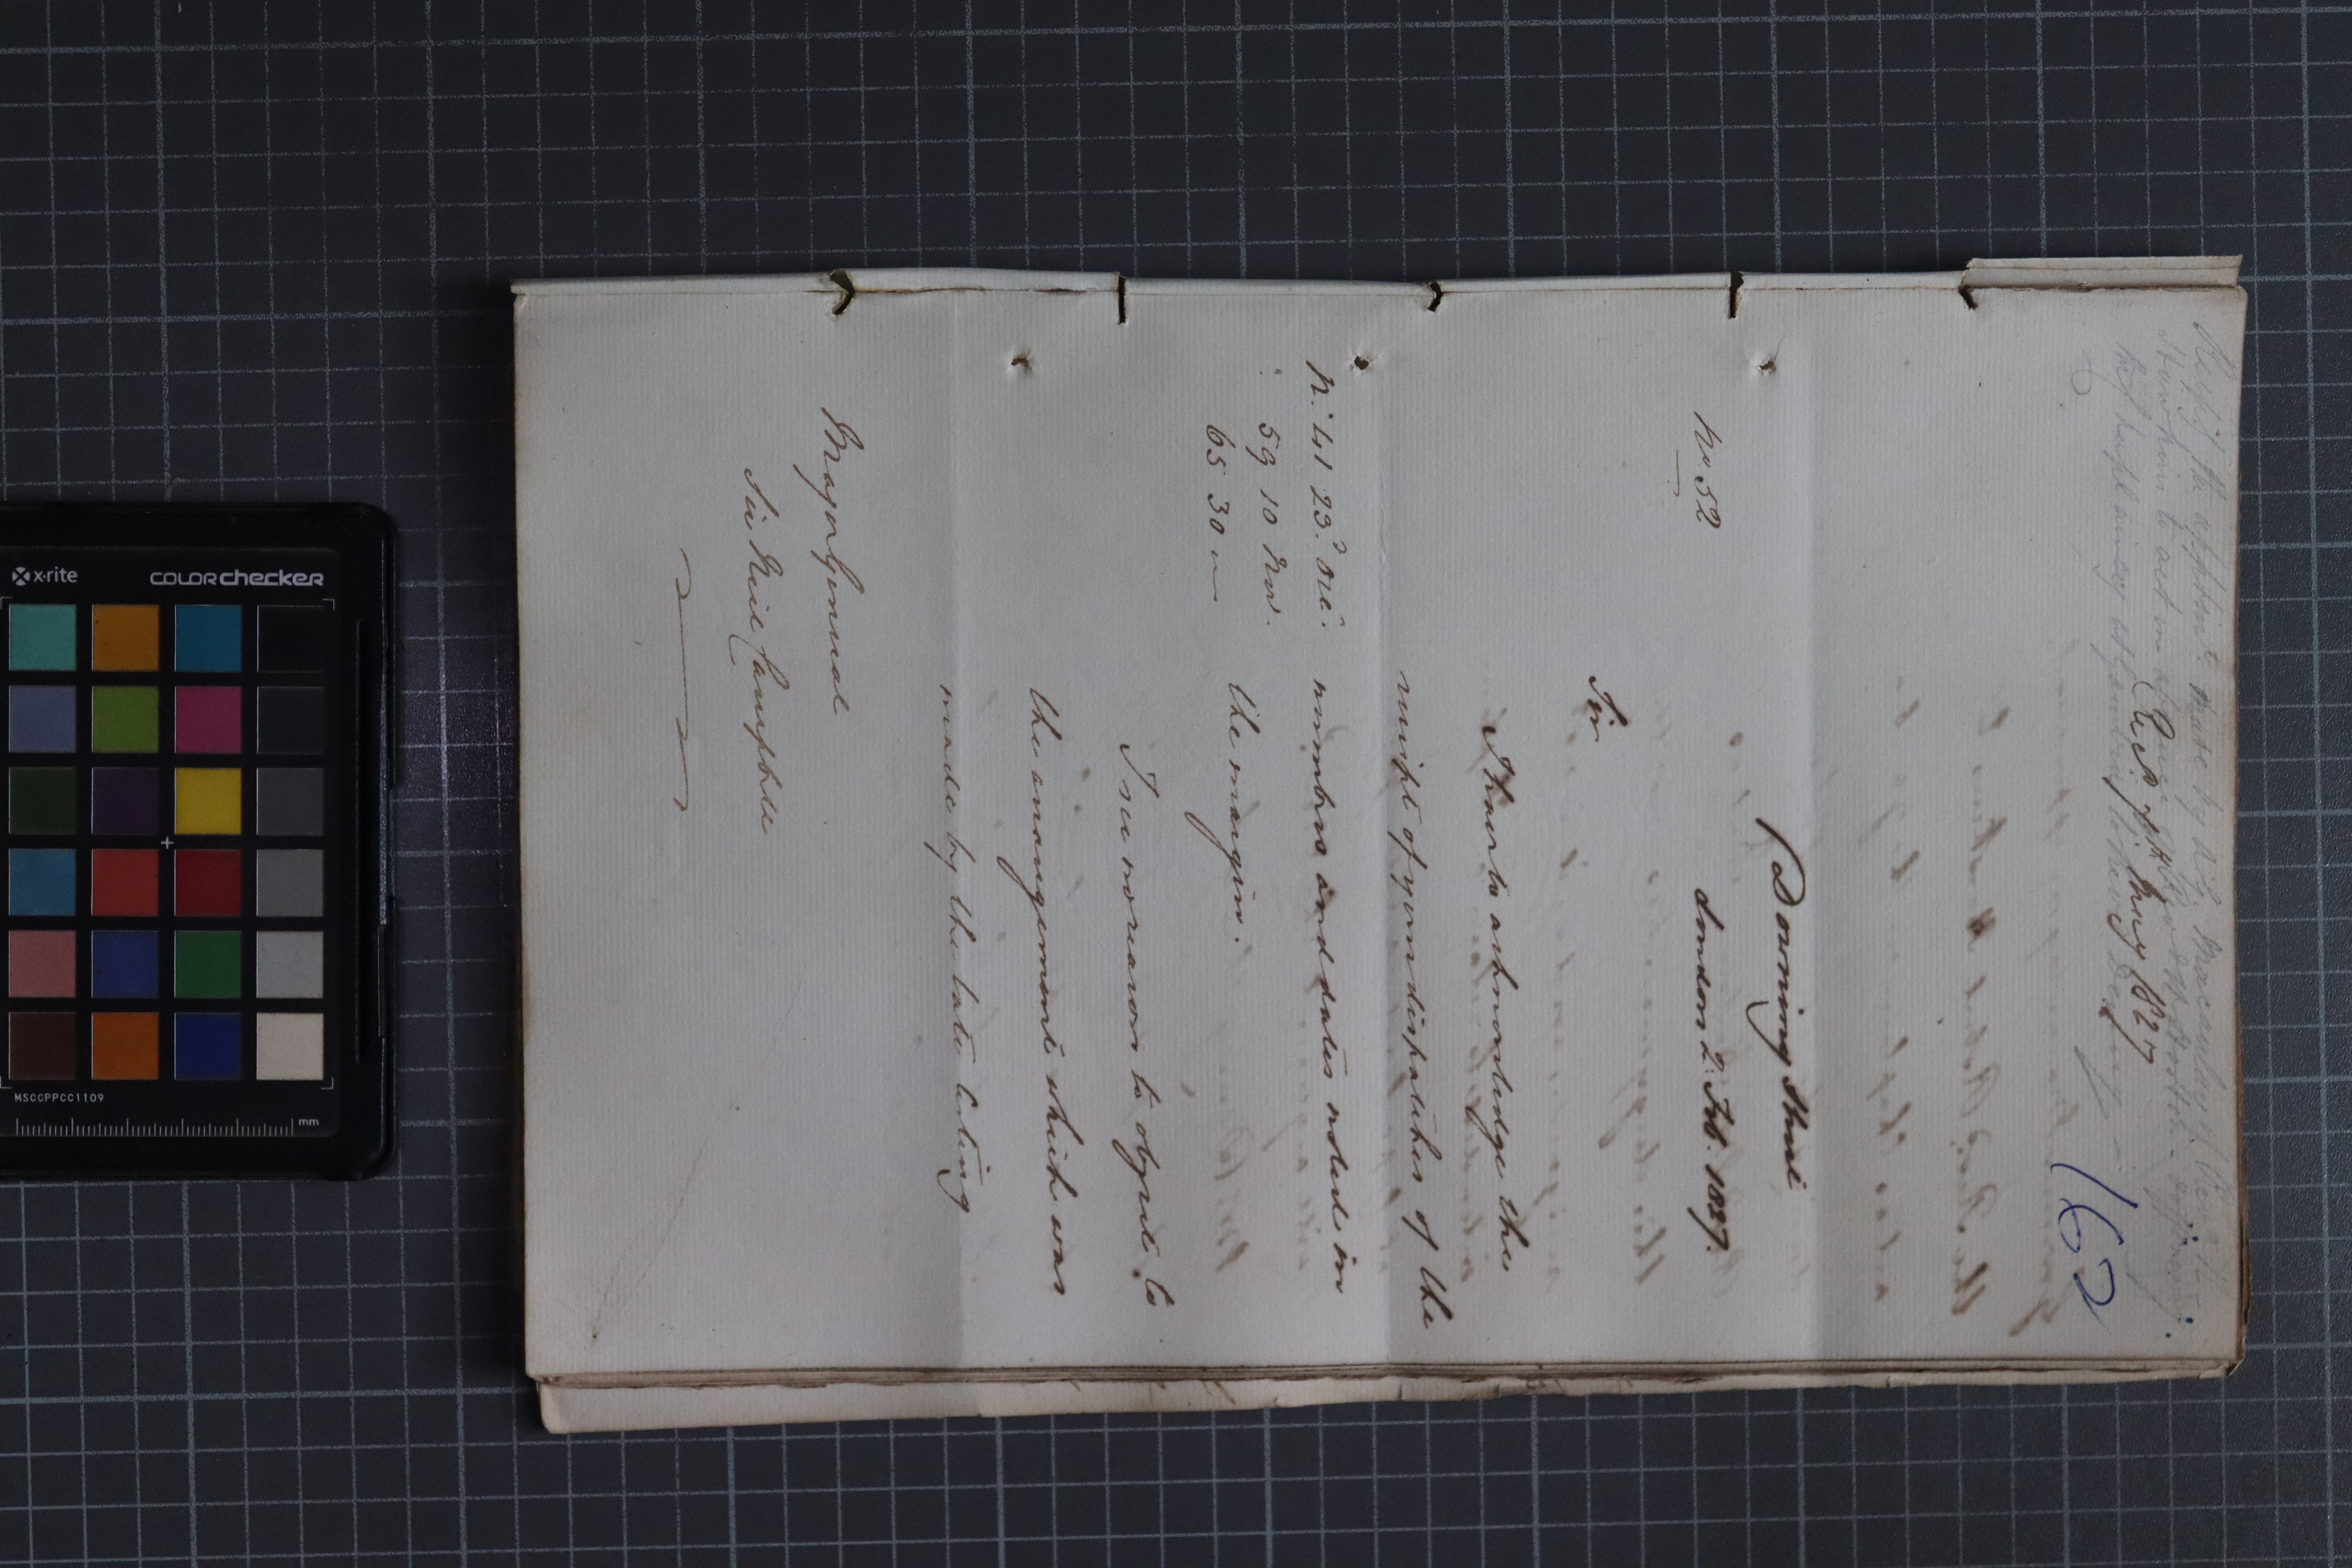 Respg. the appointt. made by
162
Recd. 7th May 1827
Downing Street
No. 52
London 2. Feb. 1827.
Sir
I have to acknowledge the
receipt of your dispatches of the
No. 41 23d. Dec. numbers and dates noted in
59 10 Nov. the margin.
65 30
I see no reason to object to
the arrangement which was
made by the late Acting
Major General
Sir Neil Campbell
x-rite COLORchecker
MSCCPPCC1109
mm